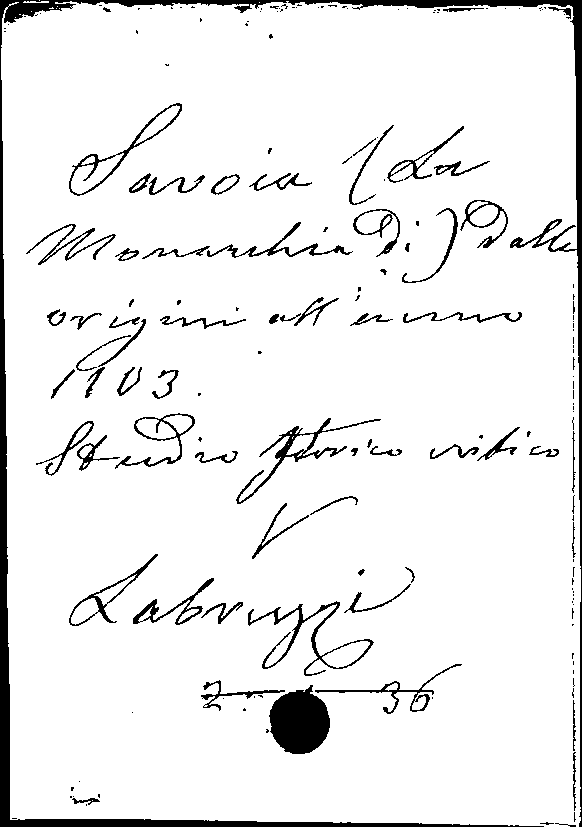 Savoia (La
Monarchia di) dalle
origini all'anno
1103.
Studio storico critico
V
Labruzzi
36